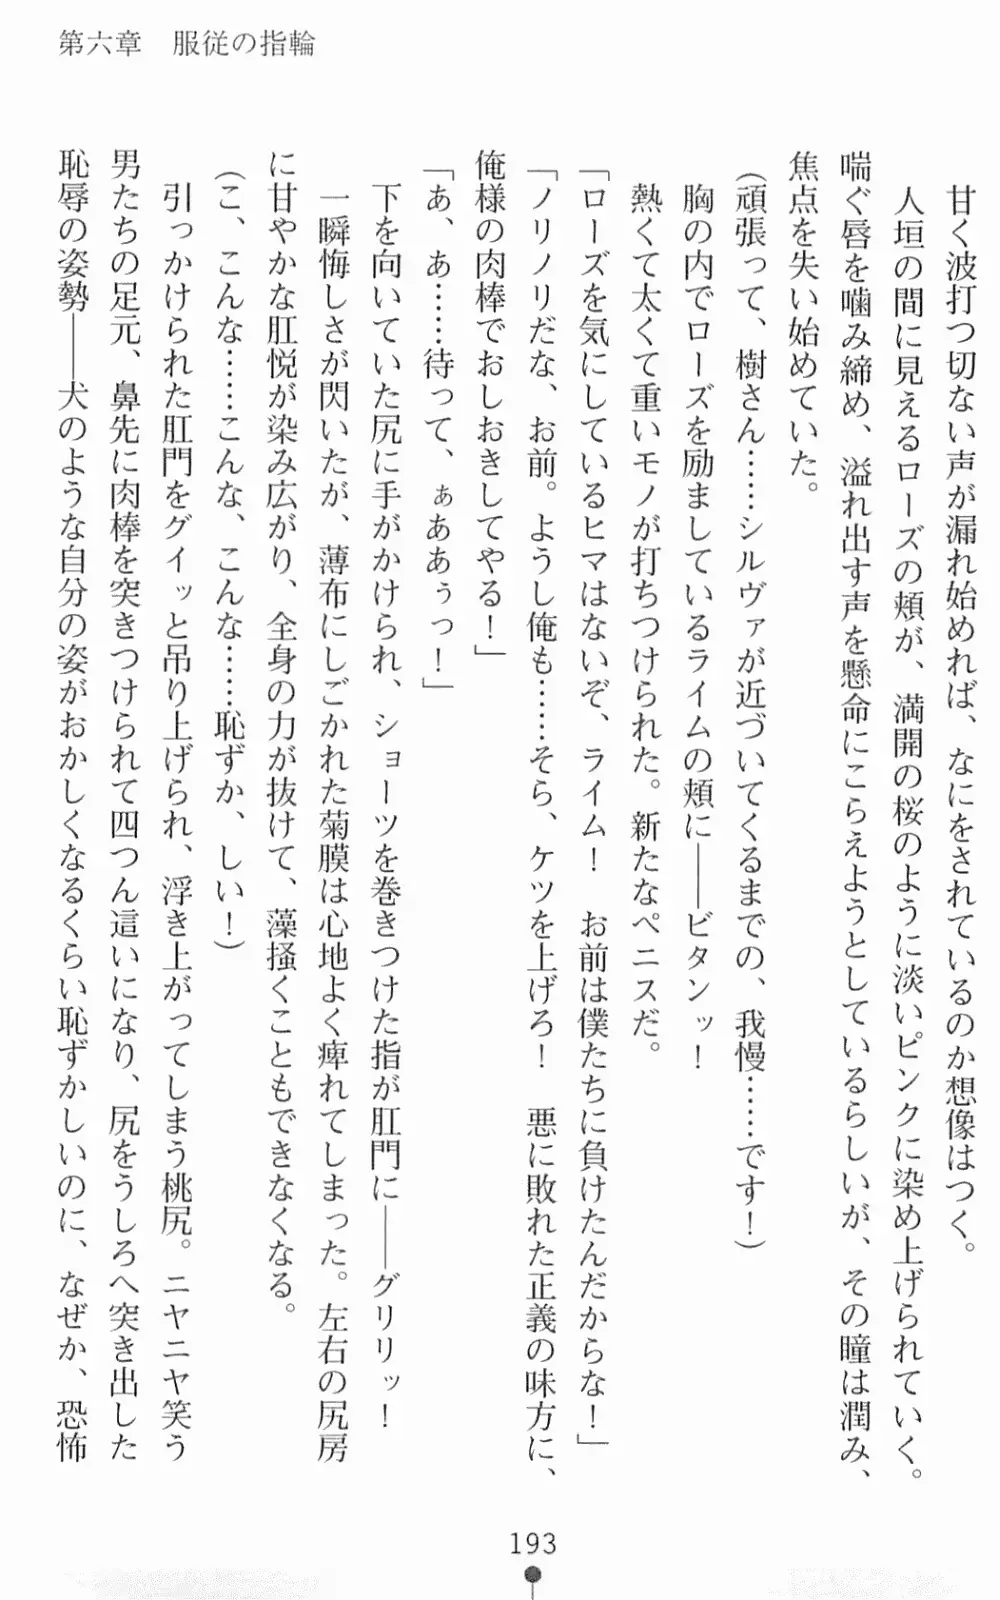 第六章　服従の指輪
甘く波打つ切ない声が漏れ始めれば、なにをされているのか想像はつく。
人垣の間に見えるローズの頬が、満開の桜のように淡いピンクに染め上げられていく。
喘ぐ唇を噛み締め、溢れ出す声を懸命にこらえようとしているらしいが、その瞳は潤み、
焦点を失い始めていた。
(頑張って、樹さん……シルヴァが近づいてくるまでの、我慢……です！)
胸の内でローズを励ましているライムの頬に――ビタンッ！
熱くて太くて重いモノが打ちつけられた。新たなペニスだ。
「ローズを気にしているヒマはないぞ、ライム！　お前は僕たちに負けたんだからな！」
「ノリノリだな、お前。ようし俺も……そら、ケツを上げろ！　悪に敗れた正義の味方に、
俺様の肉棒でおしおきしてやる！」
「あ、あ……待って、ぁああぅっ！」
下を向いていた尻に手がかけられ、ショーツを巻きつけた指が肛門に――グリリッ！
一瞬悔しさが閃いたが、薄布にしごかれた菊膜は心地よく痺れてしまった。左右の尻房
に甘やかな肛悦が染み広がり、全身の力が抜けて、藻掻くこともできなくなる。
(こ、こんな……こんな、こんな……恥ずか、しい！)
引っかけられた肛門をグイッと吊り上げられ、浮き上がってしまう桃尻。ニヤニヤ笑う
男たちの足元、鼻先に肉棒を突きつけられて四つん這いになり、尻をうしろへ突き出した
恥辱の姿勢――犬のような自分の姿がおかしくなるくらい恥ずかしいのに、なぜか、恐怖
193